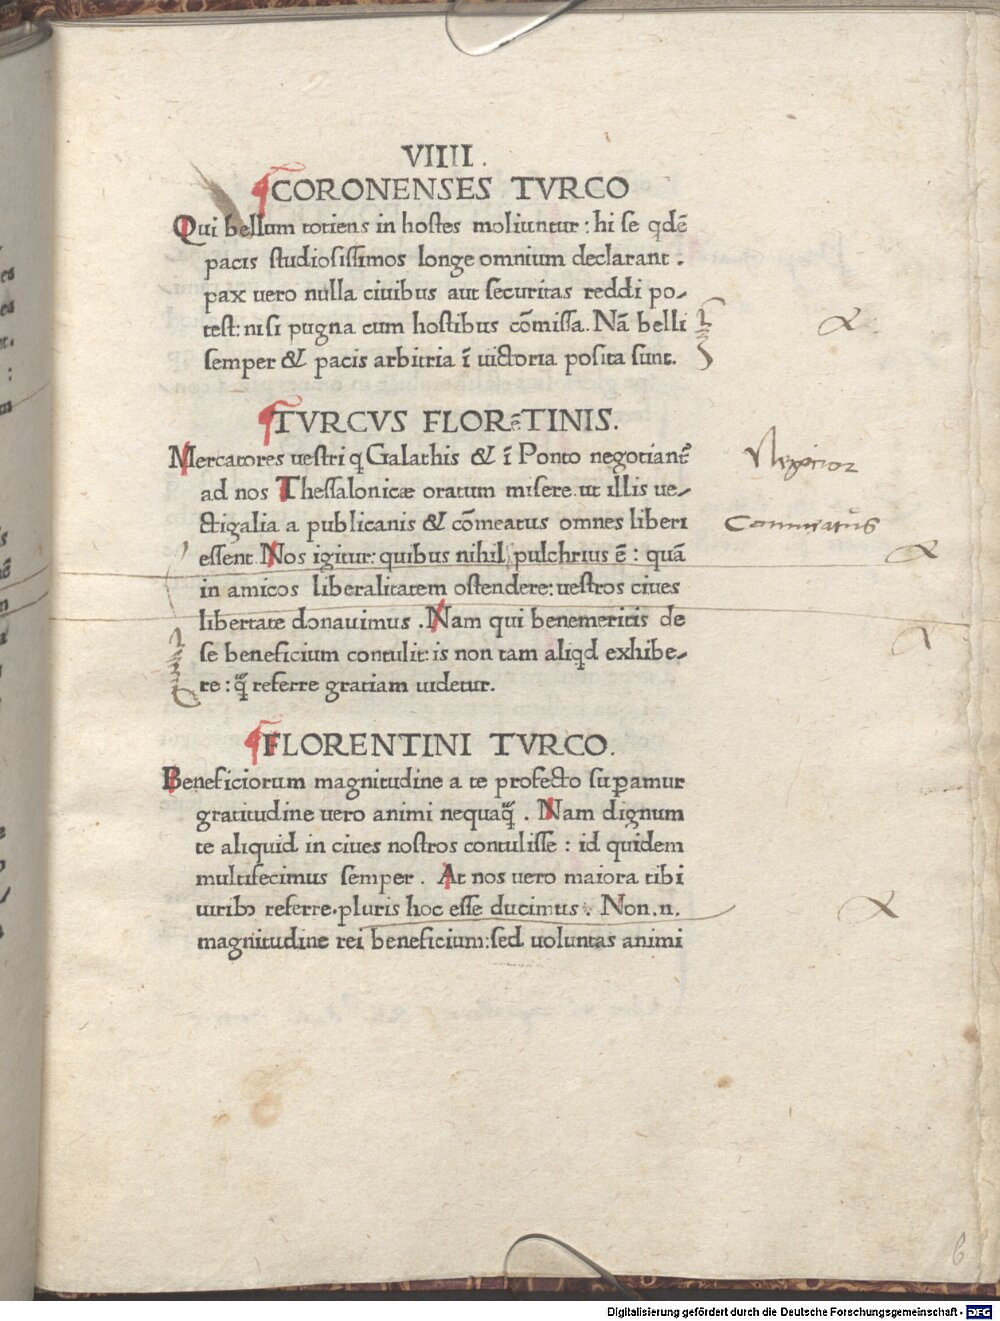 VIIII.
CORONENSES TVRCO
Qui bellum totiens in hostes moliuntur : hi se qdē
pacis studiosissimos longe omnium declarant .
pax uero nulla ciuibus aut securitas reddi po-
test: nisi pugna cum hostibus cōmissa. Nā belli
semper & pacis arbitria ī uictoria posita sunt.
TVRCVS FLORēTINIS.
Mercatores uestri q Galathis & ī Ponto negotiant᷑
ad nos Thessalonicæ oratum misere. ut illis ue-
ctigalia a publicanis & cōmeatus omnes liberi
essent. Nos igitur: quibus nihil pulchrius ē : quā
in amicos liberalitatem ostendere: uestros ciues
libertate donauimus . Nam qui benemeritis de
se beneficium contulit: is non tam aliqd exhibe-
re : q̃ referre gratiam uidetur.
FLORENTINI TVRCO.
Beneficiorum magnitudine a te profecto suꝑamur
gratitudine uero animi nequaq̃ . Nam dignum
te aliquid in ciues nostros contulisse : id quidem
multifecimus semper . At nos uero maiora tibi
uiribꝫ referre. pluris hoc esse ducimus . Non .n.
magnitudine rei beneficium: sed uoluntas animi
Commeatus
6
Digitalisierung gefördert durch die Deutsche Forschungsgemeinschaft - DFG